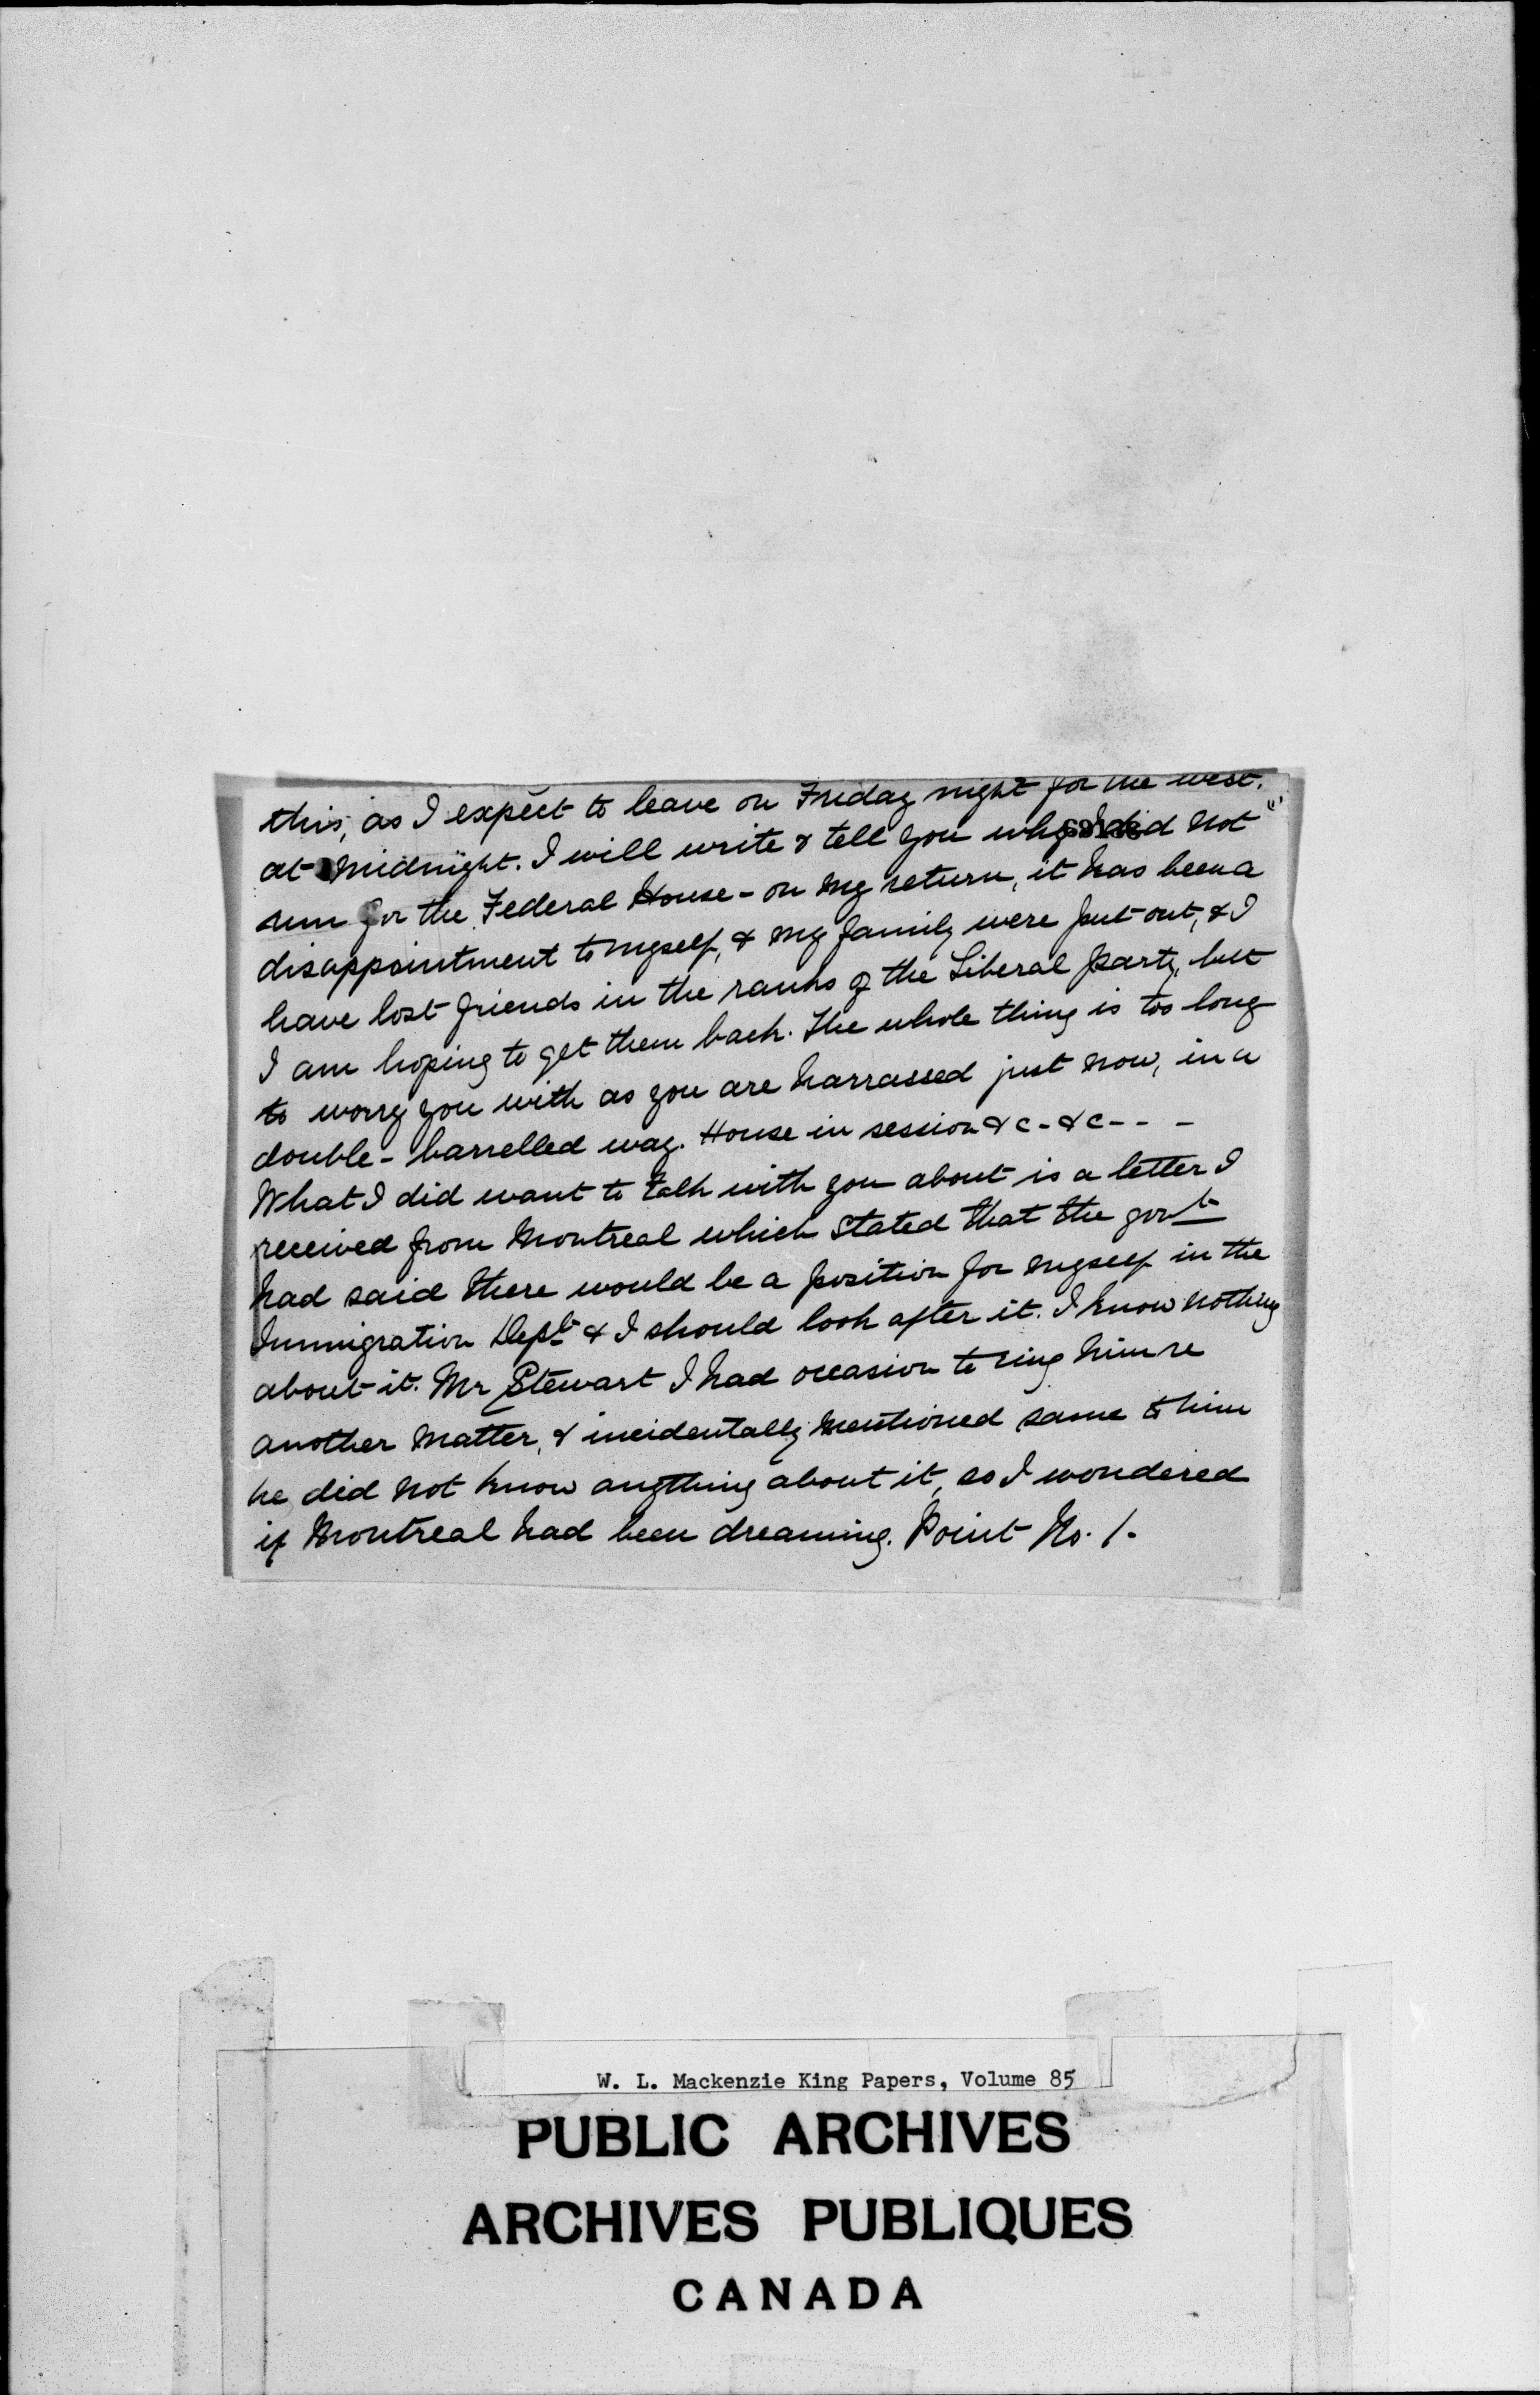 this, as I expect to leave on Friday night for the west.
at midnight. I will write & tell you why I did not "
run for the Federal House - on my return, it has been a
disappointment to myself, & my family were put out, & I
have lost friends in the ranks of the Liberal party, but
I am hoping to get them back. The whole thing is too long
to worry you with as you are harrassed just now, in a
double-barrelled way. House in session & c - & c - - -
What I did want to talk with you about is a letter I
received from Montreal which stated that the govt
had said there would be a position for myself in the
Immigration Dept & I should look after it. I know nothing
about it. Mr Stewart I had occasion to ring him re
another matter, & incidentally mentioned same to him
he did not know anything about it, so I wondered
if Montreal had been dreaming. Point No. 1.
W. L. Mackenzie King Papers, Volume 85
PUBLIC ARCHIVES
ARCHIVES PUBLIQUES
CANADA